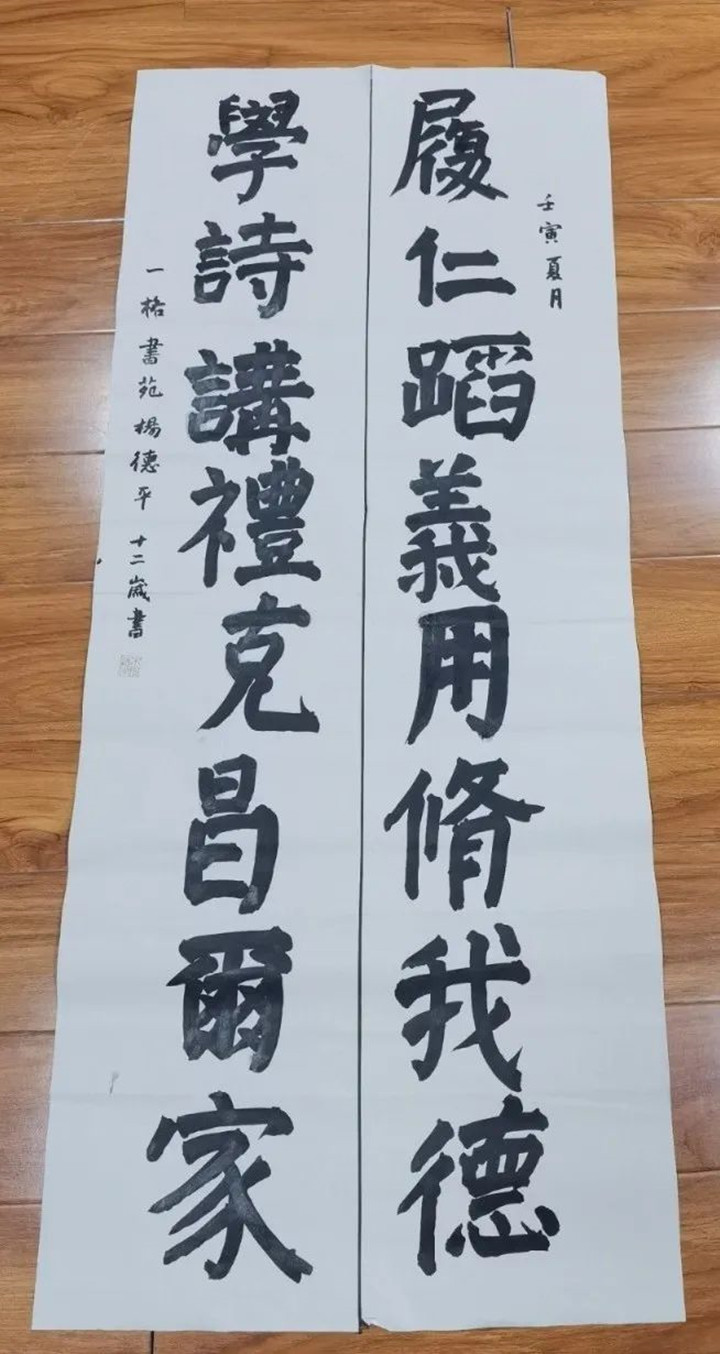 壬寅夏月
履仁蹈義用脩我德
學詩講禮克昌爾家
一格書苑楊德平十二歲書